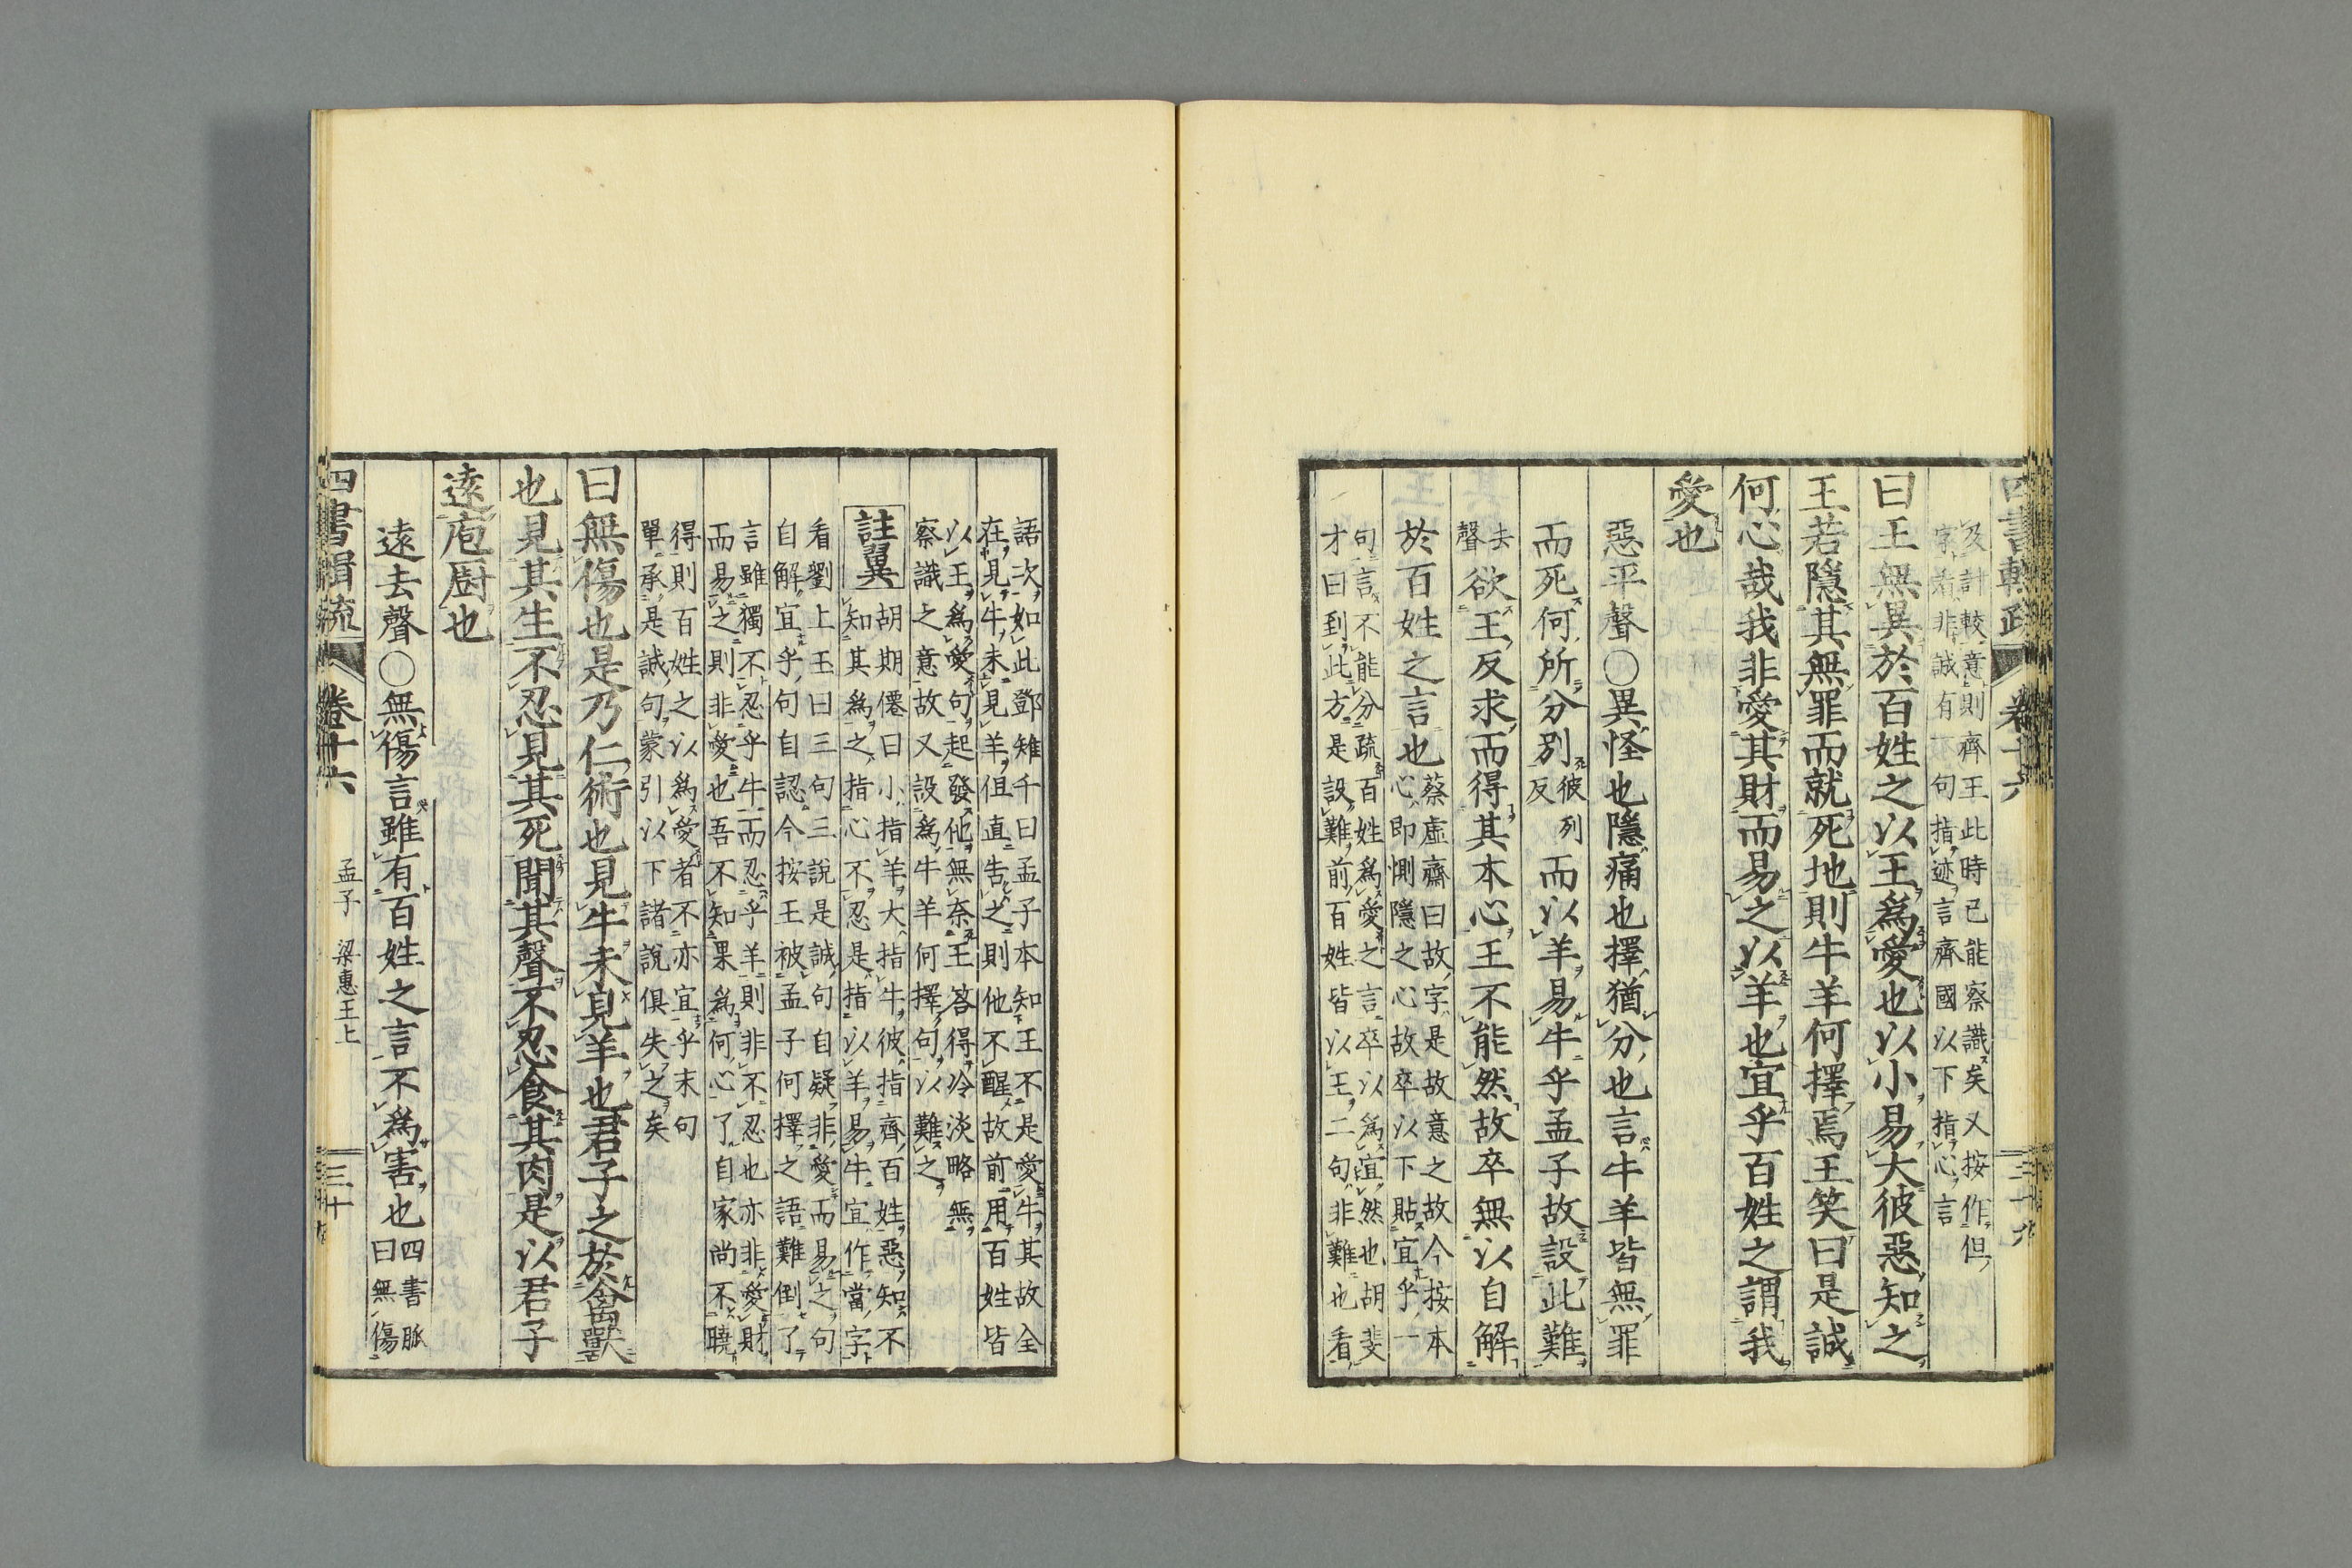 四書輯疏 卷十六
及計較意則齊王此時已能察識矣又按作但
字看非誠有 句指迹言齊國以下指心言
曰王無異於百姓之以王爲愛也以小易大彼惡知之
王若隱其無罪而就死地則牛羊何擇焉王笑曰是誠
何心哉我非愛其財而易之以羊也宜乎百姓之謂我
愛也
惡平聲○異怪也隱痛也擇猶分也言牛羊皆無罪
而死何所分別彼列反而以羊易牛乎孟子故設此難
去聲欲王反求而得其本心王不能然故卒無以自解
於百姓之言也蔡虛齋曰故字是故意之故今按本
心即惻隱之心故卒以下貼宜乎一
句言不能分疏百姓爲愛之言卒以爲宜然也胡斐
才曰到此方是設難前百姓皆以王二句非難也看
語次如此鄧雉千曰孟子本知王不是愛牛其故全
在見牛未見羊但直告之則他不醒故前用百姓皆
以王爲愛句起發他無奈王答得冷淡略無
察識之意故又設爲牛羊何擇句以難之
註翼 胡期僊曰小指羊大指牛彼指齊百姓惡知不
知其爲之指心不忍是指以羊易牛宜作當字
看劉上玉曰三句三說是誠句自疑非愛而易之句
自解宜乎句自認今按王被孟子何擇之語難倒了
言雖獨不忍乎牛而忍乎羊則非不忍也亦非愛財
而易之則非愛也吾不知果爲何心了自家尚不曉
得則百姓之以爲愛者不亦宜乎末句
單承是誠句蒙引以下諸說俱失之矣
曰無傷也是乃仁術也見牛未見羊也君子之於禽獸
也見其生不忍見其死聞其聲不忍食其肉是以君子
遠庖廚也
遠去聲○無傷言雖有百姓之言不爲害也四書脈
曰無傷
四書輯疏 卷十六 孟子 梁惠王上 三十